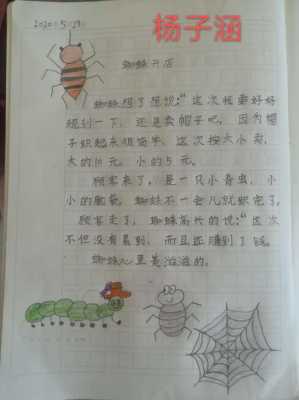 2020.5.29.
杨子涵
蜘蛛开店
蜘蛛想了想说:“这次我要好好
规划一下,还是卖帽子吧,因为帽
子织起来很简单,这次按大小卖,
大的10元,小的5元。
顾客来了,是一只小青虫,小
小的脑袋,蜘蛛不一会儿就织完了,
顾客走了,蜘蛛高兴的说:“这次
不但没有累到,而且还赚到了钱。
蜘蛛心里美滋滋的。